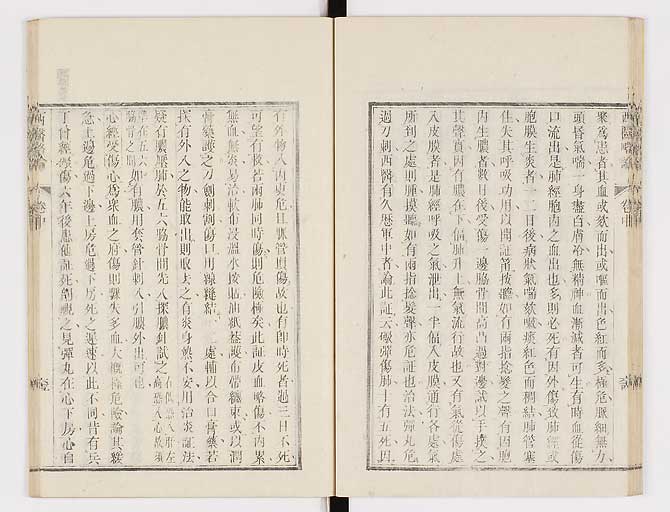 聚爲患者其血或欬而出或嘔而出色紅而多極危脈細無力
頭昏氣喘一身盡白膚冷無精神血漸減者可生有時血從傷
口流出是肺經胞內之血出也多則必死有因外傷致肺經或
胞膜生炎者一二日後病狀氣喘欬嗽痰紅色而稠結肺管塞
住失其呼吸功用以聞証筩按聽如有兩指捻髮之聲有因胞
內生膿者數日後受傷一邊脇骨間高凸過對邊試以手擊之
其聲實因有膿在下偪肺升上無氣流行故也又有氣從傷處
入皮膜者是肺經呼吸之氣泄出一半偪入皮膜通行各處氣
所到之處則腫摸聽如有兩指捻髮聲亦危証也治法彈丸危
過刀刺西醫有久歷軍中者論此証云礮彈傷肺十有五死因
有外物入內更危且脈管血傷故也有卽時死者過三日不死
可望有救若兩肺同時傷則危險極矣此証皮血略傷不內累
無血無炎易治軟布浸溫水按貼油紙蓋護布帶纏束或以潤
膏藥護之刀劍刺割傷口用線縫結 處輔以合口膏藥若
探有外入之物能取出則取去之有炎身熱不安用治炎証法
疑有膿壓肺於五六脇骨間先入探膿針試之
在五六如有膿用套管針刺入引膿外出可也
心經受傷心爲衆血之府傷則驟失多血大槪極危險論其緩
急上邊危過下邊上房危過下房死之遲速以此不同昔有兵
丁曾經受傷六年後患他証死剖視之見彈丸在心下房心自
西醫略論
卷中